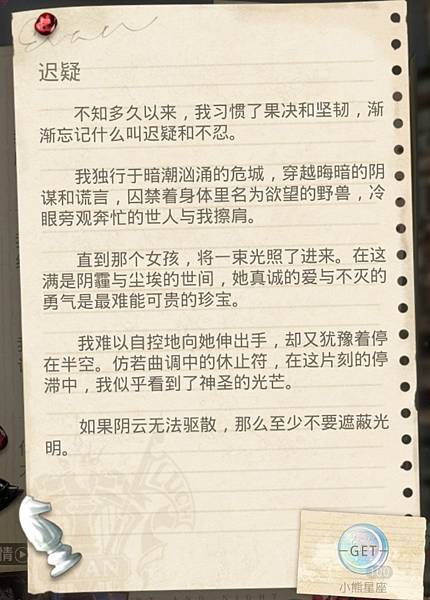 Evan
迟疑
不知多久以来，我习惯了果决和坚韧，渐
渐忘记什么叫迟疑和不忍。
我独行于暗潮汹涌的危城，穿越晦暗的阴
谋和谎言，囚禁着身体里名为欲望的野兽，冷
眼旁观奔忙的世人与我擦肩。
直到那个女孩，将一束光照了进来。在这
满是阴霾与尘埃的世间，她真诚的爱与不灭的
勇气是最难能可贵的珍宝。
我难以自控地向她伸出手，却又犹豫着停
在半空。仿若曲调中的休止符，在这片刻的停
滞中，我似乎看到了神圣的光芒。
如果阴云无法驱散，那么至少不要遮蔽光
明。
情
GET
100
小熊星座